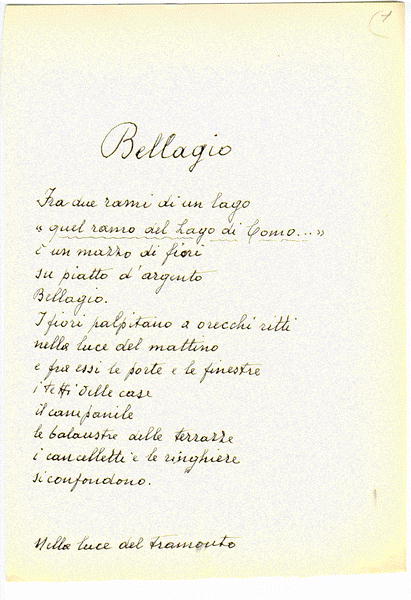 1
Bellagio
Fra due rami di un lago
« quel ramo del Lago di Como... »
è un mazzo di fiori
su piatto d'argento
Bellagio.
I fiori palpitano a orecchi ritti
nella luce del mattino
e fra essi le porte e le finestre
i tetti delle case
il campanile
le balaustre delle terrazze
i cancelletti e le ringhiere
si confondono.
Nella luce del tramonto